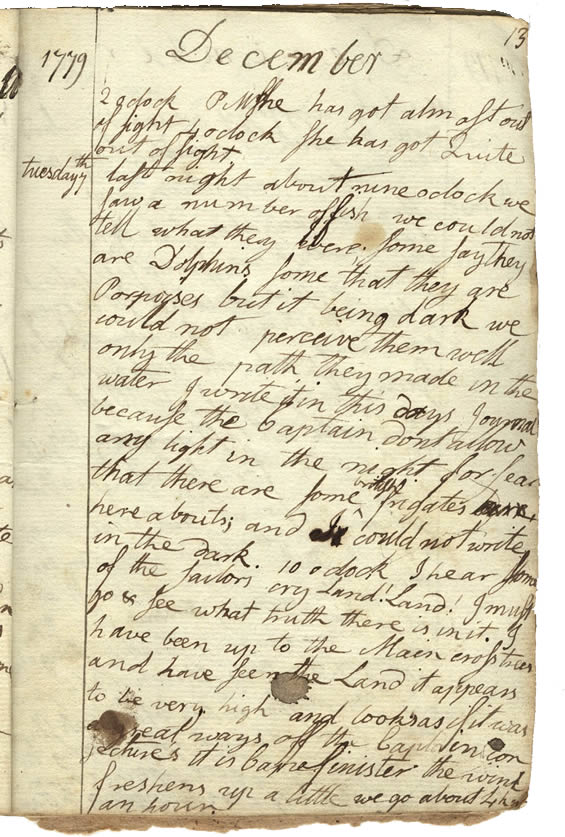 13
1779
December
2 oclock P M she has got almost out
of sight 4 oclock she has got Quite
out of sight
tuesday 7th
last night about nine oclock we
saw a number of fish we could not
tell what they were. some say they
are Dolphins some that they are
Porpoises but it being dark we
could not perceive them well
only the path they made in the
water I write it in this days Journal
because the Captain dont allow
any light in the night for fear
that there are some british frigates
here abouts; and I could not write
in the dark. 10 oclock I hear some
of the sailors cry Land! Land! I must
go & see what truth there is in it. I
have been up to the Main crosstrees
and have seen the Land it appears
to be very high and looks as if it was
a great ways off the Captain con
jectures it is Cape finister the wind
freshens up a little we go about 4
an hour